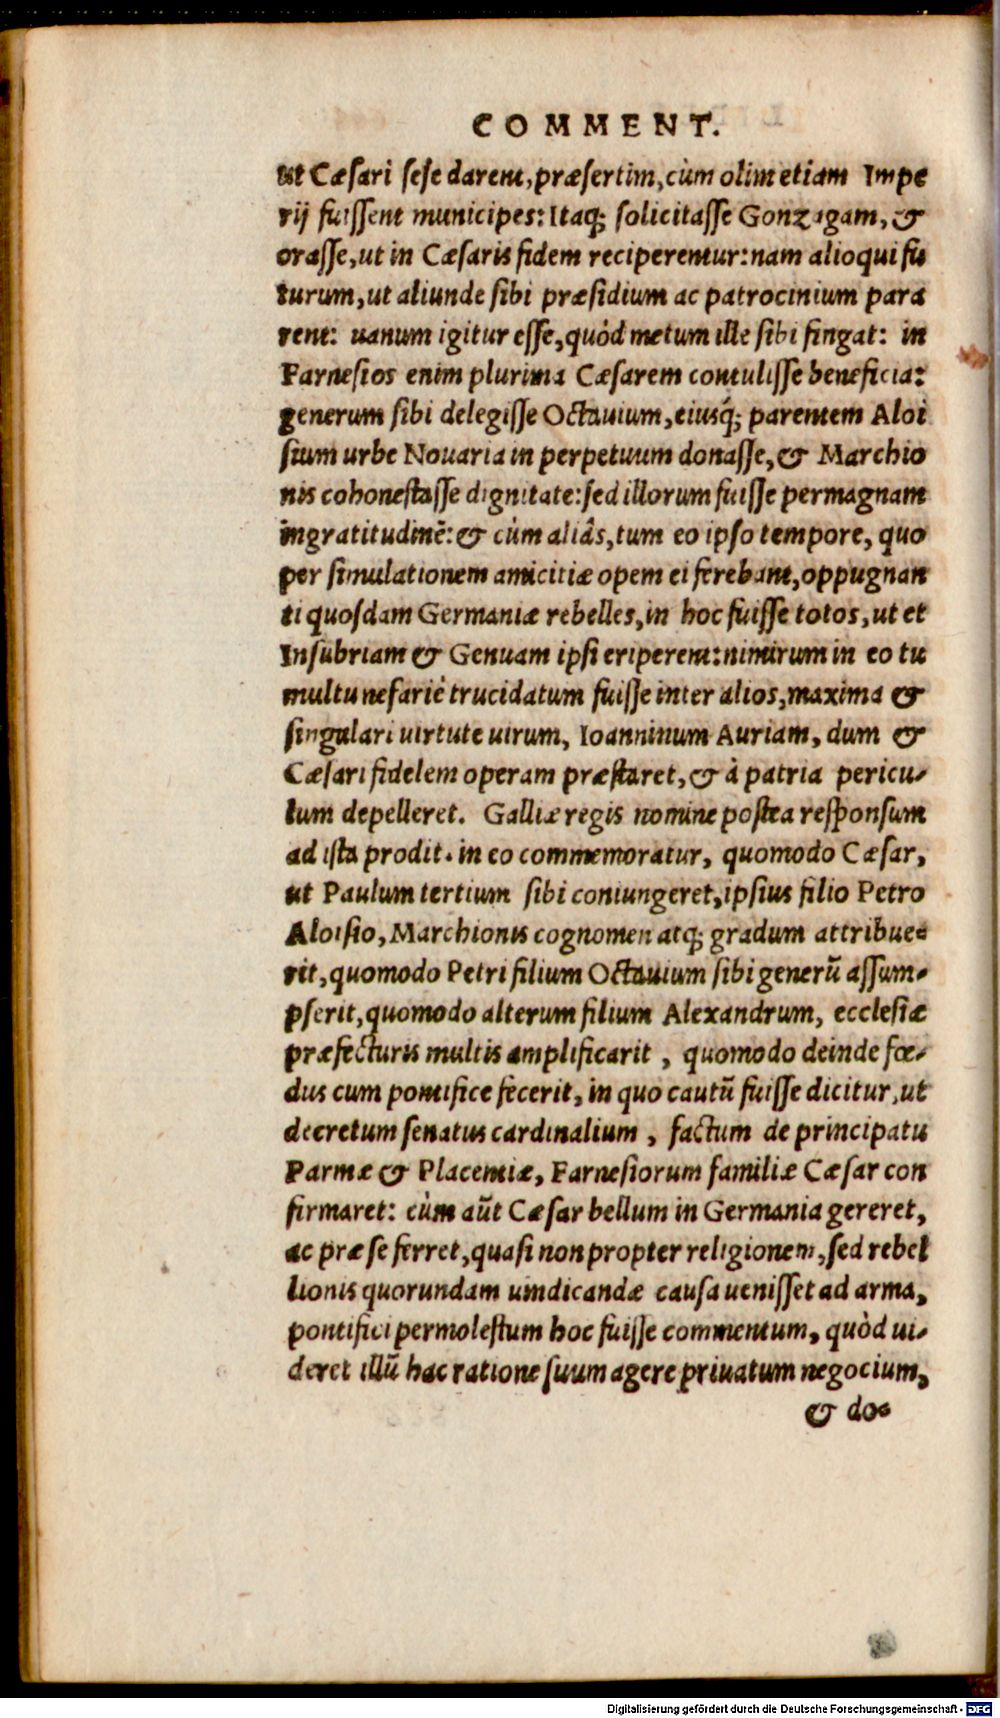 COMMENT.
ut Cæsari sese darent, præsertim, cùm olim etiam Impe
rij fuissent municipes: Itaq; solicitasse Gonzagam, &
orasse, ut in Cæsaris fidem reciperentur: nam alioqui fu
turum, ut aliunde sibi præsidium ac patrocinium para
rent: uanum igitur esse, quòd metum ille sibi fingat: in
Farnesios enim plurima Cæsarem contulisse beneficia:
generum sibi delegisse Octauium, eiusq́; parentem Aloi
sium urbe Nouaria in perpetuum donasse, & Marchio
nis cohonestasse dignitate: sed illorum fuisse permagnam
ingratitudinẽ: & cùm aliâs, tum eo ipso tempore, quo
per simulationem amicitiæ opem ei ferebant, oppugnan
ti quosdam Germaniæ rebelles, in hoc fuisse totos, ut et
Insubriam & Genuam ipsi eriperent: nimirum in eo tu
multu nefariè trucidatum fuisse inter alios, maxima &
singulari uirtute uirum, Ioanninum Auriam, dum &
Cæsari fidelem operam præstaret, & à patria pericu-
lum depelleret. Galliæ regis nomine postea responsum
ad ista prodit. in eo commemoratur, quomodo Cæsar,
ut Paulum tertium sibi coniungeret, ipsius filio Petro
Aloisio, Marchionis cognomen atq; gradum attribue-
rit, quomodo Petri filium Octauium sibi generũ assum-
pserit, quomodo alterum filium Alexandrum, ecclesiæ
præfecturis multis amplificarit, quomodo deinde fœ-
dus cum pontifice fecerit, in quo cautũ fuisse dicitur, ut
decretum senatus cardinalium, factum de principatu
Parmæ & Placentiæ, Farnesiorum familiæ Cæsar con
firmaret: cùm aũt Cæsar bellum in Germania gereret,
ac præ se ferret, quasi non propter religionem, sed rebel
lionis quorundam uindicandæ causa uenisset ad arma,
pontifici permolestum hoc fuisse commentum, quòd ui-
deret illũ hac ratione suum agere priuatum negocium,
& do-
Digitalisierung gefördert durch die Deutsche Forschungsgemeinschaft - DFG